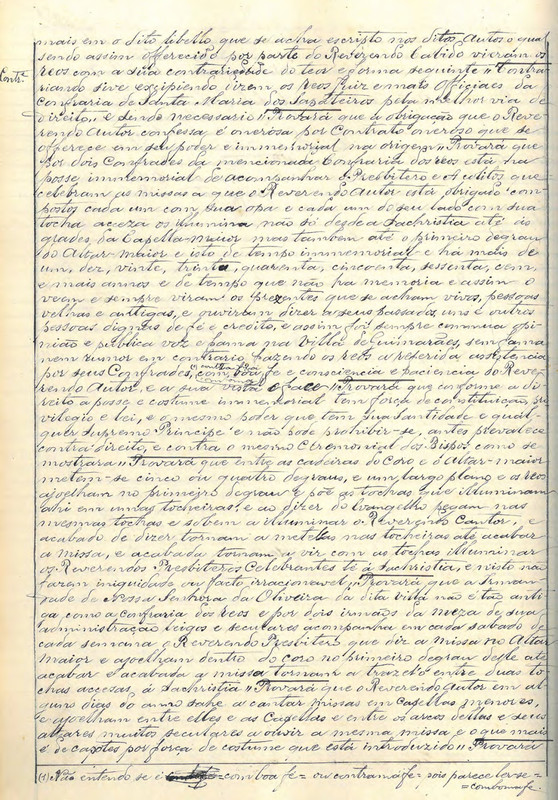 mais em o dito libello que se acha escripto nos ditos Autos o qual
sendo assim offerecido por parte do Reverendo Cabido vieram os
Contr.e
reos com a sua contrariedade do teor e forma seguinte " Contra
riando sive excipiendo dizem os reos Juiz e mais officiaes da
Confraria de Santa Maria dos Sapateiros pela melhor via de
direito, e sendo necessario " Provará que a obrigação que o Reve
rendo Autor confessa, é onerosa por Contrato oneroso que se
offerece em seu poder e immemorial na origem " Provará que
por dois Confrades da mencionada Confraria dos reos está na
posse immemorial de acompanhar o Presbitero e Acolitos que
celebram as missas a que o Reverendo Autor está obrigado com
postos cada um com sua opa e cada um do seu lado com sua
tocha acceza os illumina não só desde a Sachristia até ás
grades da Capella-maior mas tambem até o primeiro degrau
do Altar-maior e isto de tempo immemorial e ha mais de
um, dez, vinte, trinta, quarenta, cincoenta, sessenta, cem,
e mais annos e de tempo que não ha memoria e assim o
veem e sempre viram os prezentes que se acham vivos, pessoas
velhas e antigas, e ouviram dizer a seus passados, uns e outros
pessoas dignas de fé e credito, e assim foi sempre commua opi
nião e publica voz e fama na Villa de Guimarães, sem fama
nem rumor em contrario fazendo os reos a referida assistencia
por seus Confrades, com boa fe e consciencia e paciencia do Reve
rendo Autor, e a sua vista e face " Provará que conforme a di
reito a posse e costume immemorial tem força de constituição, pri
vilegio e lei, e o mesmo poder que tem Sua Santidade e qual-
quer supremo Principe e não pode prohibir-se, antes prevalece
contra direito, e contra o mesmo Ceremonial dos Bispos como se
mostrara " Provará que entre as cadeiras do Coro e o Altar-maior
metem-se cinco ou quatro degraus, e um largo plano e os reos
ajoelham no primeiro degrau e põe as tochas que illuminam
ahi em umas tocheiras, e ao dizer do Evangelho pegam nas
mesmas tochas e sobem a illuminar o Reverendo Cantor, e
acabado de dizer tornam a metelas nas tocheiras até acabar
a missa, e acabada tornam a vir com as tochas illuminar
os Reverendos Presbiteros Celebrantes té à Sachristia, e nisto não
fazem iniquidade ou facto irracionavel " Provará que a Irman-
dade de Nossa Senhora da Oliveira da dita villa não é tão anti
ga como a Confraria dos reos e por dois irmãos da meza de sua
administração leigos e seculares acompanha em cada sabado de
cada semana o Reverendo Presbitero que dir a missa no Altar
maior e ajoelham dentro do coro no primeiro degrau delle até
acabar e acabada a missa tornam a trazelo entre duas to
chas accesas, à Sachristia " Provará que o Reverendo Autor em al
guns dias do anno sahe a cantar missas em Capellas menores,
e ajoelham entre elles e as Capellas e entre os arcos dellas e seus
altares muitos seculares a ouvir a mesma missa e o que mais
é de capotes por força de costume que está introduzido " Provará
(1) Não entendo se é = com boa fe = ou contra má fe = pois parece ler-se =
= combomafe.